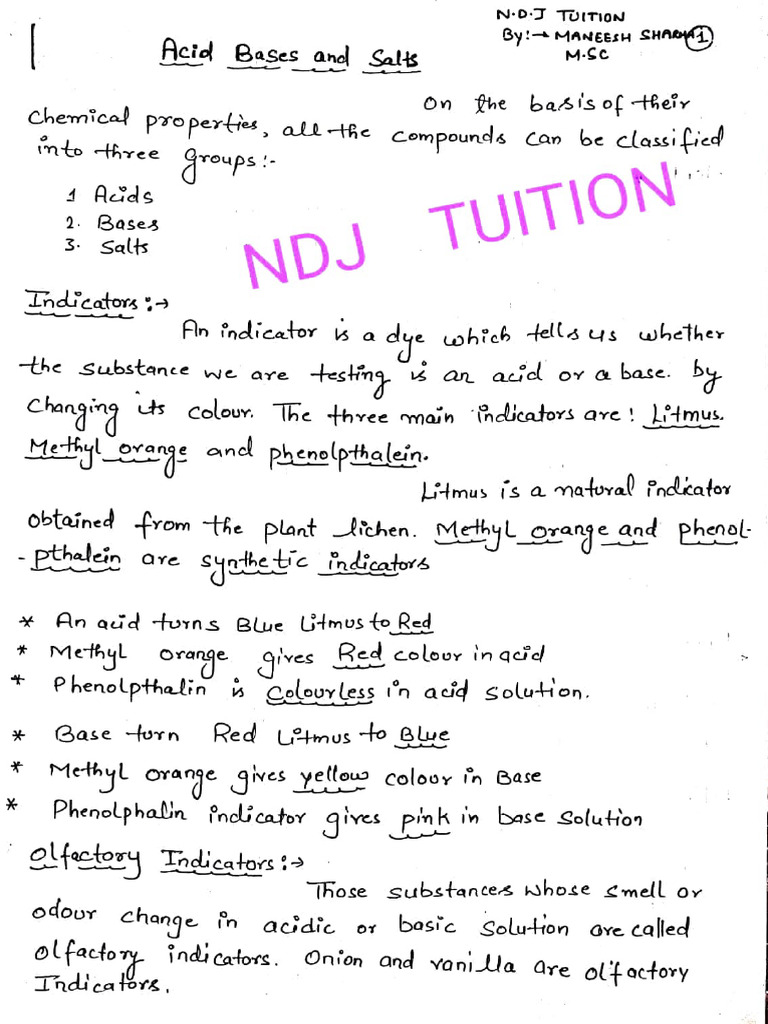 N.D.J TUITION
By:→ MANEESH SHARMA 1
M.SC
Acid Bases and Salts
On the basis of their
Chemical properties, all the compounds can be classified
into three groups:-
1 Acids
2. Bases
3. Salts
NDJ TUITION
Indicators:→
An indicator is a dye which tells us whether
the substance we are testing is an acid or a base. by
Changing its colour. The three main indicators are! Litmus.
Methyl orange and phenolpthalein.
Litmus is a natural indicator
obtained from the plant lichen. Methyl orange and phenol-
-pthalein are synthetic indicators
* An acid turns Blue Litmus to Red
* Methyl orange gives Red colour in acid
* Phenolpthalin is Colourless in acid solution.
* Base turn Red Litmus to Blue
* Methyl orange gives yellow colour in Base
* Phenolphalin indicator gives pink in base solution
Olfactory Indicators:→
Those substances whose smell or
odour change in acidic or basic solution are called
olfactory indicators. Onion and vanilla are olfactory
Indicators.